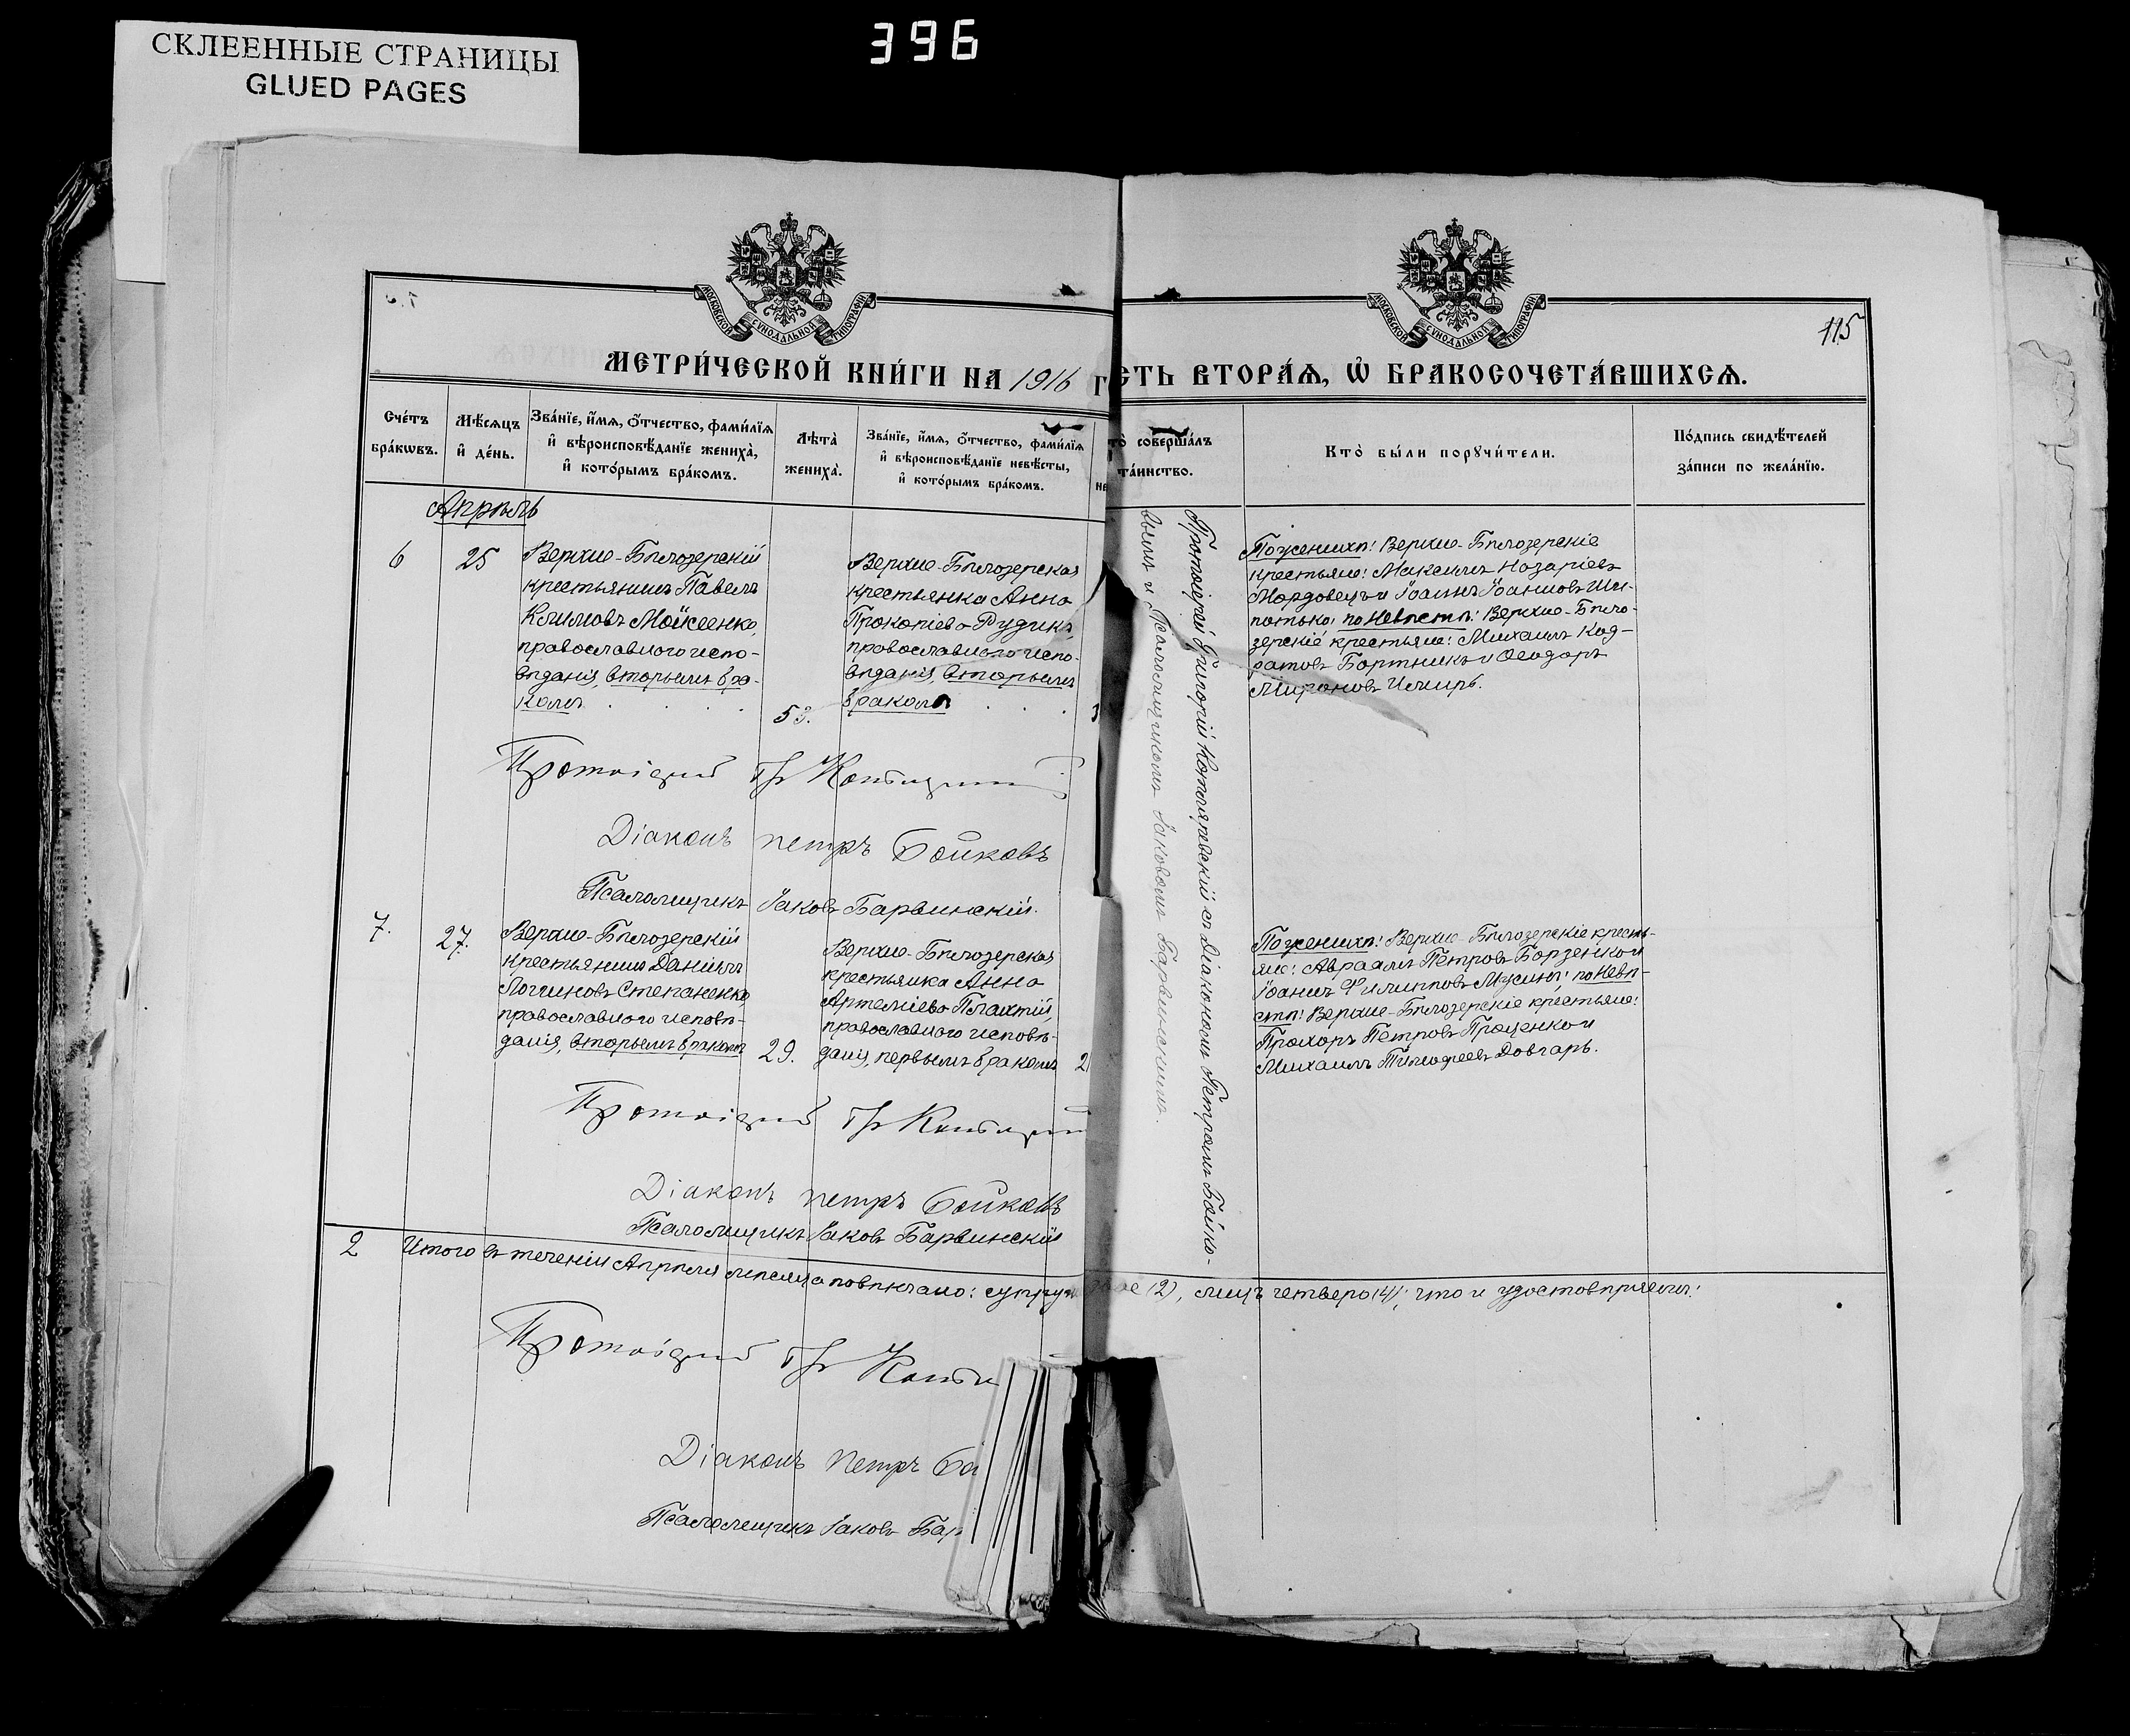 396
СКЛЕЕННЫЕ СТРАНИЦЫ
GLUED PAGES
МОСКОВСКОЙ СУНОДАЛЬНОЙ ТИПОГРАФІИ
МОСКОВСКОЙ СУНОДАЛЬНОЙ ТИПОГРАФІИ
115
МЕТРИ́ЧЕСКОЙ КНИ́ГИ НА 1916 Г
СТЬ ВТОРА́Ѧ, Ѡ БРАКОСОЧЕТА́ВШИХСѦ.
Сче́тъ бра́кѡвъ.
Мѣ́сѧцъ и҆ де́нь.
Зва́нїе, и҆́мѧ, ѻ҆́тчество, фами́лїѧ
и҆ вѣроисповѣ́данїе жениха̀,
и҆ кото́рымъ бра́комъ.
Лѣ́та жениха̀.
Зва́нїе, и҆́мѧ, ѻ҆́тчество, фами́лїѧ
и҆ вѣроисповѣ́данїе невѣ́сты,
и҆ кото́рымъ бра́комъ.
то̀ соверша́лъ
та́инство.
Кто̀ бы́ли порꙋчи́тели.
По́дпись свидѣ́телей
за́писи по жела́нїю.
Апрѣль
6
25
Верхне-Бѣлозерскій
крестьянинъ Павелъ
Климовъ Мойсеенко,
православнаго испо-
вѣданія, вторымъ бра-
комъ
53.
Верхне-Бѣлозерская
крестьянка Анна
Прокопіева Рудикъ,
православнаго испо-
вѣданія, вторымъ
бракомъ
Протоіерей Григорій Котляревскій съ Діакономъ Петромъ Бойко-
вымъ и Псаломщикомъ Іаковомъ Барвинскимъ.
По женихѣ: Верхне-Бѣлозерскіе
крестьяне: Максимъ Назаріевъ
Мордовецъ и Іоаннъ Іоанновъ Ши-
потько; по невѣстѣ: Верхне-Бѣло-
зерскіе крестьяне: Михаилъ Код-
ратовъ Бортникъ и Ѳеодоръ
Мироновъ
Протоіерей Гр
Діаконъ Петръ Бойковъ
Псаломщикъ Іаковъ Барвинскій.
7.
27.
Верхне-Бѣлозерскій
крестьянинъ Даніилъ
Логгиновъ Степаненко
православнаго исповѣ-
данія, вторымъ бракомъ
29.
Верхне-Бѣлозерская
крестьянка Анна
Артеміева Плахтій,
православнаго исповѣ-
данія, первымъ бракомъ
2
По женихѣ: Верхне-Бѣлозерскіе кресть-
яне: Авраамъ Петровъ Борзенко и
Іоаннъ Филипповъ; по невѣ-
стѣ: Верхне-Бѣлозерскіе крестьяне:
Прохоръ Петровъ Проценко и
Михаилъ Тимофеевъ Довгарь.
Протоіерей Гр
Діаконъ Петръ Бойковъ
Псаломщикъ Іаковъ Барвинскій
2 Итого въ теченіи Апрѣля мѣсяца повѣнчано: супру двое (2), лицъ четверо (4); что и удостовѣряемъ:
Протоіерей Гр
Діаконъ Петръ Бой
Псаломщикъ Іаковъ Бар